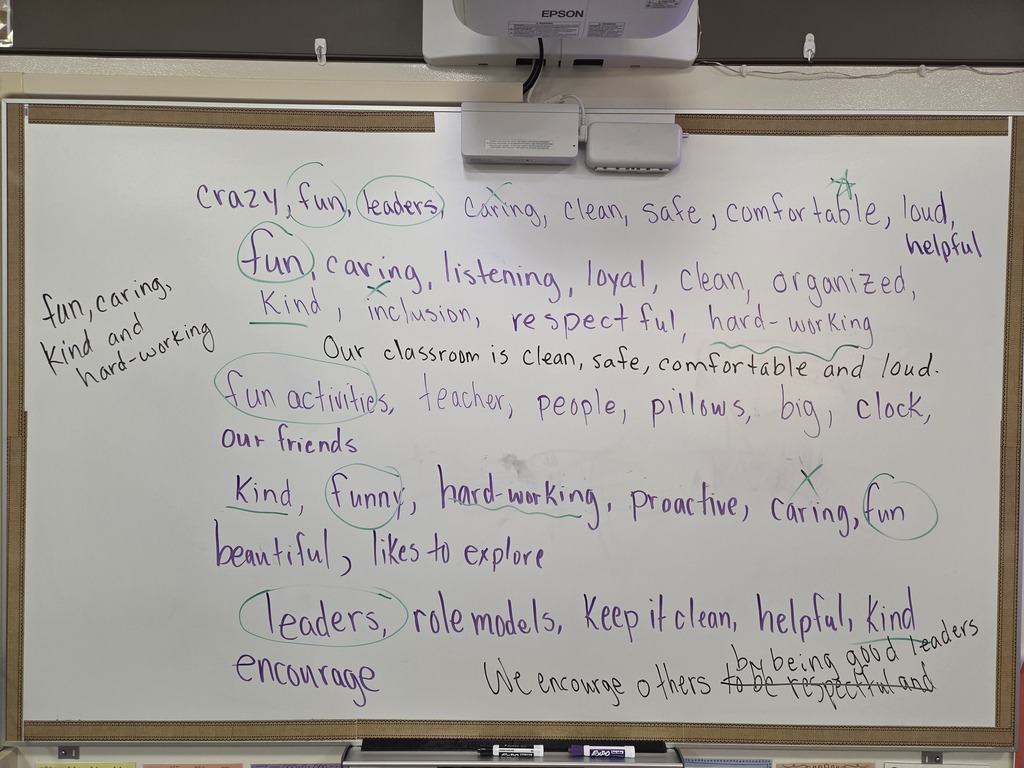 EPSON
crazy, fun, leaders, caring, clean, safe, comfortable, loud,
helpful
fun, caring, listening, loyal, clean, organized,
Kind, inclusion, respectful, hard-working
fun, caring,
Kind and
hard-working
Our classroom is clean, safe, comfortable and loud.
fun activities, teacher, people, pillows, big, clock,
our friends
Kind, funny, hard-working, proactive, caring, fun
beautiful, likes to explore
leaders, role models, Keep it clean, helpful, Kind
encourage
by being good leaders
We encourge others to be respectful and
EXPO